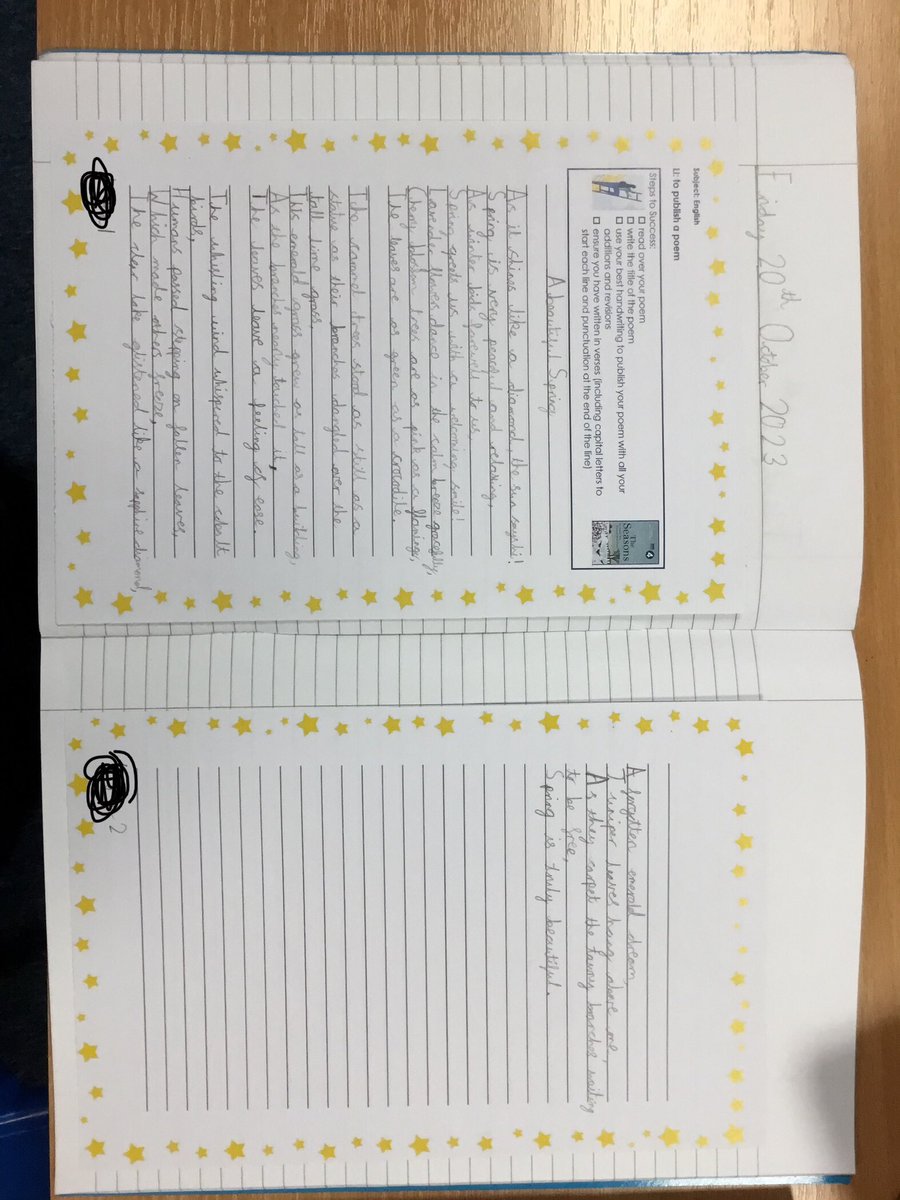 Friday 20th October 2023
Subject: English
LI: to publish a poem
Steps to Success:
☐ read over your poem
☐ write the title of the poem
☐ use your best handwriting to publish your poem with all your
additions and revisions
☐ ensure you have written in verses (including capital letters to
start each line and punctuation at the end of the line)
The
Seasons
A beautiful Spring
As it shines like a diamond, the sun says hi!
Spring is very peaceful and relaxing,
As winter bids farewell to us.
Spring greets us with a welcoming smile!
Lavender flowers dance in the calm breeze gracefully,
Cherry blossom trees are as pink as a flamingo,
The leaves are as green as a crocodile.
The camel trees stood as still as a
statue as their branches dangled over the
tall lime grass.
This emerald grass grew as tall as a building,
As the branches nearly touched it,
The leaves leave a feeling of ease.
The whirling wind whispered to the cobalt
birds,
Humans passed stepping on fallen leaves,
Which made others freeze,
The clear lake glistened like a sapphire diamond,
1
A forgotten emerald dream,
Juniper leaves hang above me,
As they carpet the tawny branches waiting
to be free,
Spring is truly beautiful.
2